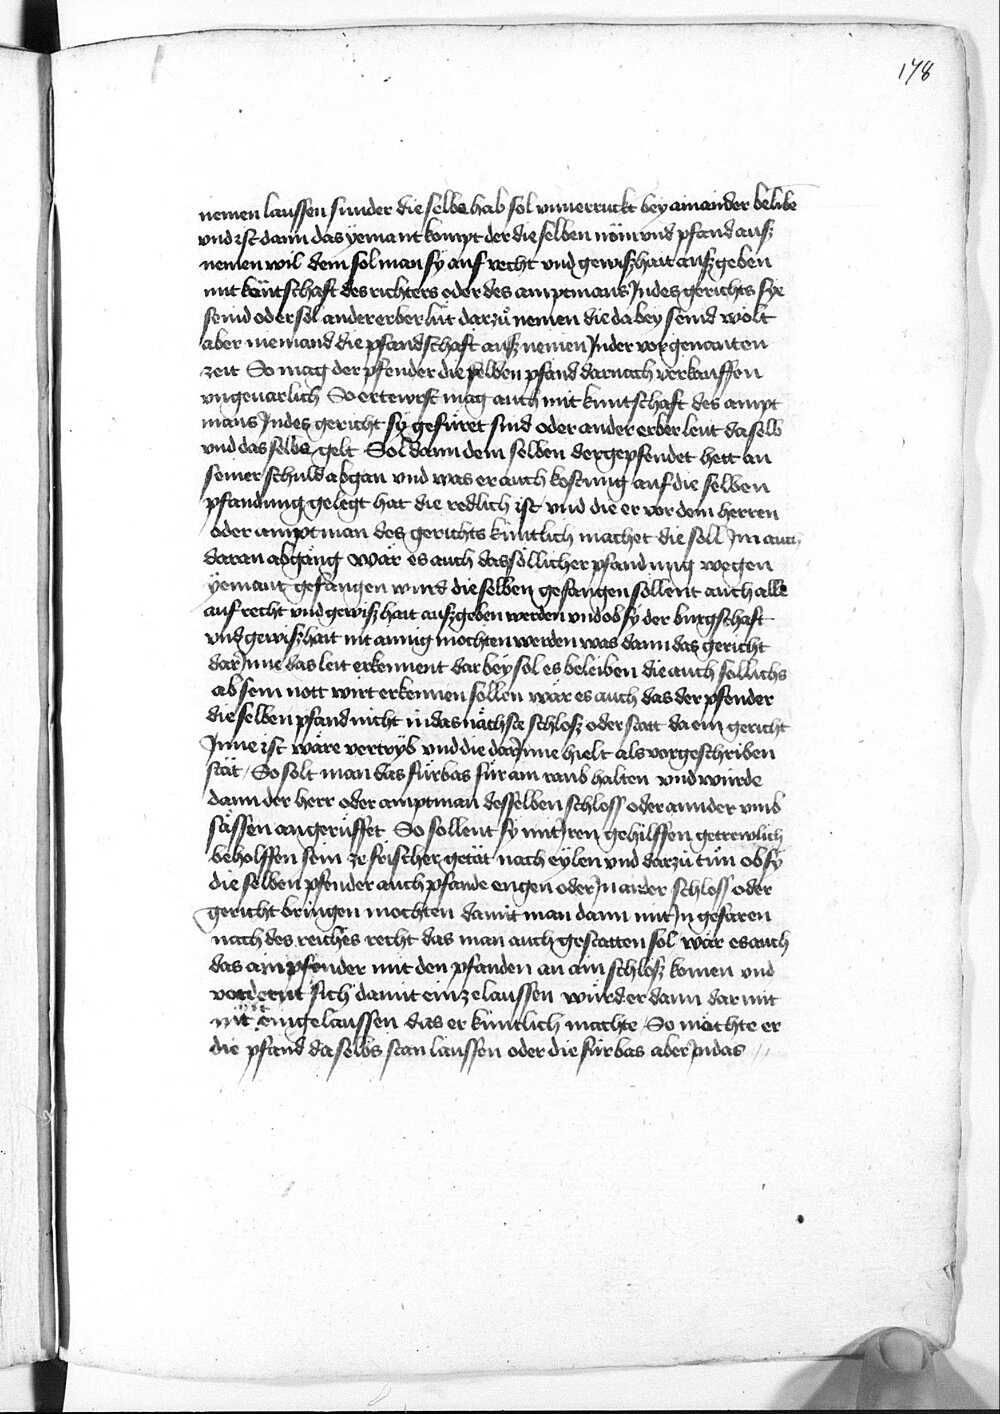 178
nemen laussen sunder die selbe hab sol vnuerruckt bey ainander belibē
vnd ist dann das yemant kompt der die selben nöm vnd pfand ausz
nemen wil dem sol man sy auf recht vnd gewiszhait ausz geben
mit kūntschaft des richters oder des amptmans Jn des gerichts sye
seind oder sol ander erber lüt darzů nemen die da bey seind wolt
aber niemand die pfandschaft ausz nemen Jn der vorgenanten
zeit So mag der pfender die selben pfand darnach verkauffen
vngeuarlich So er tewrst mag auch mit kuntschaft des ampt
mans Jn des gericht sy gefüret sind oder ander erber leüt daselb
vnd das selbe gelt Sol dann dem selben der gepfendet hett an
seiner schuld abgan vnd was er auch kostung auf die selben
pfandung gelegt hat die redlich ist vnd die er vor dem herren
oder amptman des gerichts küntlich machet die soll Jm auch
daran abgäng wär es auch das söllicher pfandung wegen
yemant gefangen wurd die selben gefangen sollent auch alle
auf recht vnd gewiszhait ausz geben werden vnd ob sy der burgschaft
vnd gewiszhait nit ainig mochten werden was dann das gericht
dar Jnne das leit erkennent dar bey sol es beleiben die auch söllichs
ab sein nott wirt erkennen söllen wär es auch das der pfender
die selben pfand nicht in das nächste schlosz oder statt da ein gericht
Jnne ist wäre vertryb vnd die dar Jnne hielt als vorgeschriben
stät / So solt man das fürbas für ain raub halten vnd würde
dann der herr oder amptman desselben schloss oder annder vmb
sässen angerüffet So sollent sy mit Jren gehilffen getrewlich
beholffen sein ze frischer getät nach eylen vnd darzů tůn ob sy
die selben pfender auch pfande engen oder Jn ander schloss oder
gericht bringen mochten damit man dann mit Jn gefaren
nach des reiches recht das man auch gestatten sol wär es auch
das ain pfender mit den pfanden an ain schlosz komen vnd
vordernt sich damit ein ze laussen würd er dann dar mit
nit eingelaussen das er küntlich machte / So möchte er
die pfand daselbs stan laussen oder die fürbas aber Jn das